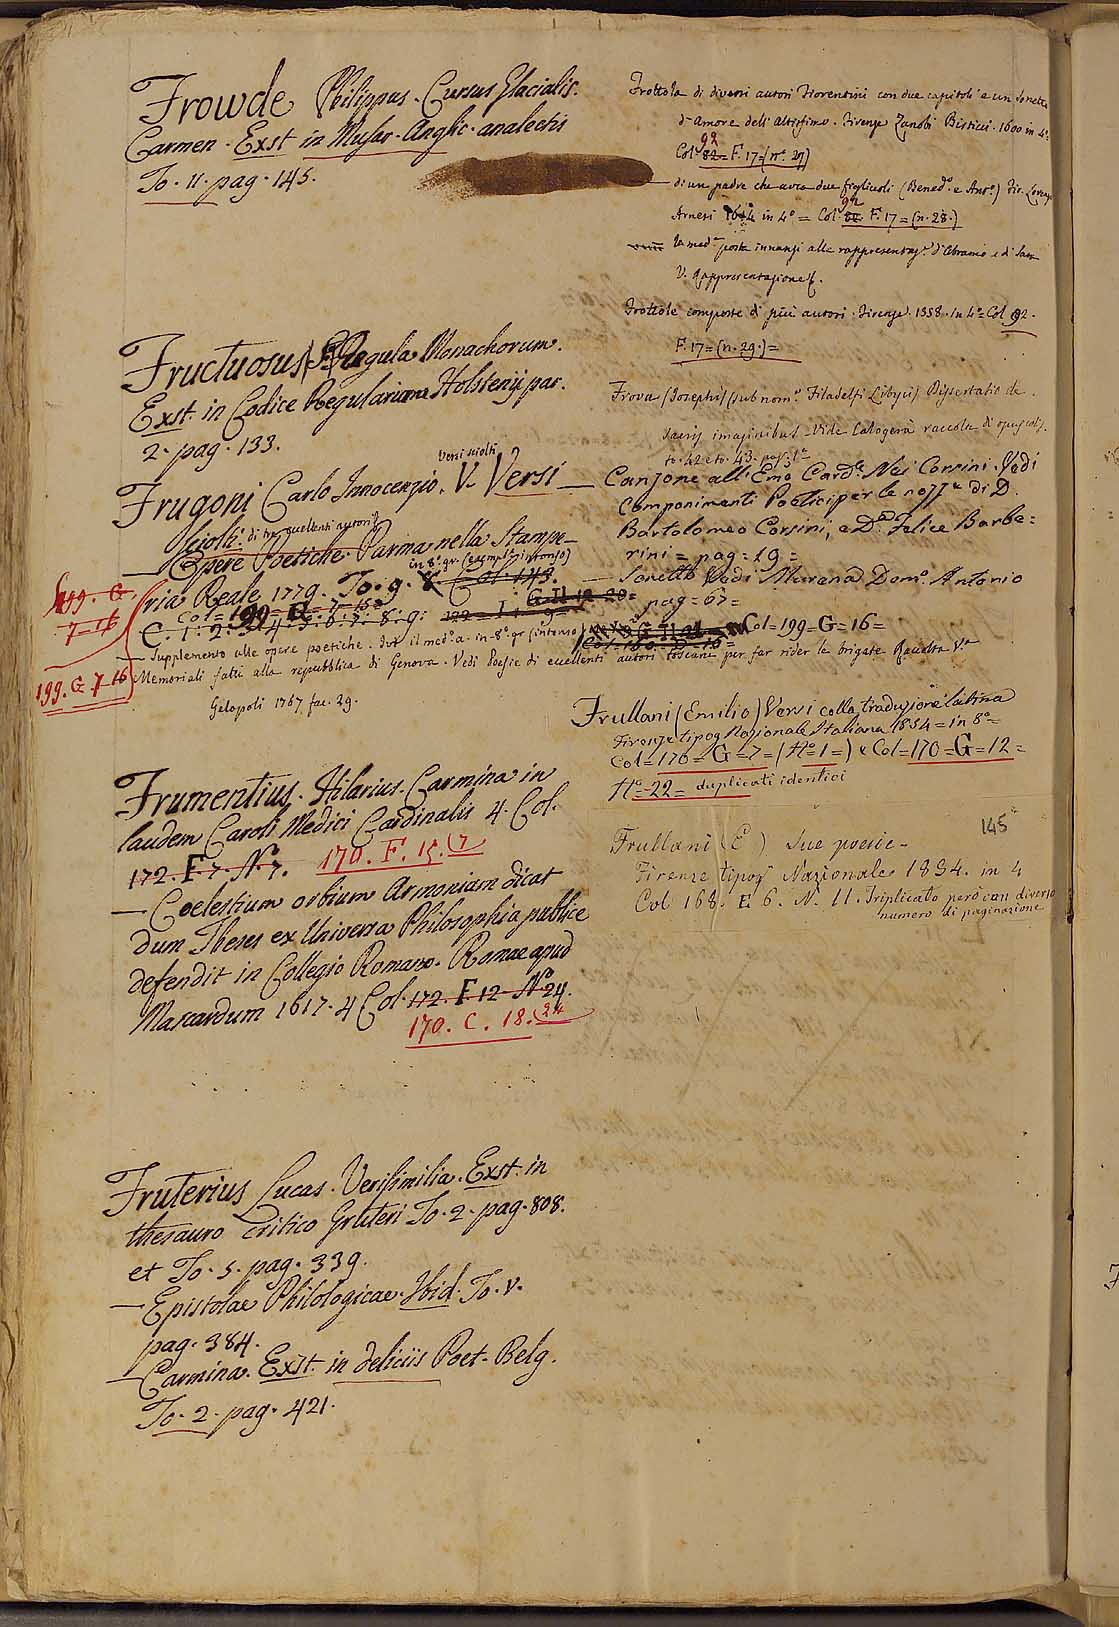 Frowde Philippus. Cursus Glacialis.
Carmen. Exst in Musar. Anglic. analectis
To. 11. pag. 145.
Fructuosus S. Regula Monachorum.
Exst. in Codice Regularium Holstenij par.
2. pag. 133.
versi sciolti
Frugoni Carlo Innocenzio. V. Versi
Sciolti. di tre eccellenti autori
— Opere Poetiche. Parma nella Stampe-
in 8º gr. (esempl. intonso)
ria Reale 1779. To. 9.
Col= 199= G= 7-16=
C. 1: 2: 3: 4: 5: 6: 7: 8: 9:
199. G.
7-16
199. G 7-16
— Supplemento alle opere poetiche. Ivi il med. a. in 8º gr (intonso) Col=199=G=16=
— Memoriali fatti alla repubblica di Genova. Vedi Poesie di eccellenti autori toscani per far rider le brigate Raccolta Vª
Gelopoli 1767 fac. 29.
Frumentius. Hilarius. Carmina in
laudem Caroli Medici Cardinalis 4. Col.
172. F. 7. Nº 7. 170. F. 15. (7
— Coelestium orbium Armoniam dicat
dum Theses ex Universa Philosophia publice
defendit in Collegio Romano. Romae apud
Mascardum 1617. 4 Col. 172. F. 12. Nº 24.
170. C. 18. (24
Fruterius Lucas. Verisimilia. Exst. in
thesauro critico Gruteri To. 2. pag. 808.
et To. 5. pag. 339.
— Epistolae Philologicae. Ibid. To. V.
pag. 384.
— Carmina. Exst. in deliciis Poet. Belg.
To. 2. pag. 421.
Frottola di diversi autori Fiorentini con due capitoli e un sonetto
d'amore dell'Altissimo. Firenze Zanobi Bisticci. 1600 in 4º
92
Col. 82= F. 17=(nº. 27)
— di un padre che avea due figliuoli (Bened.º e Ant.º) Fir. Lorenzo
92
Arnesi in 4º = Col. F. 17=(n. 28.)
la med.ª posta innanzi alle rappresentaz.ⁱ d'Abramo e di Isac
V. Rappresentazione &.
Frottole composte di più autori. Firenze. 1558. in 4º= Col 92.
F. 17=(n. 29.)=
Frova (Josephi) (sub nom.º Filadelfi Libyci) Dissertatio de
sacris imaginibus. Vide Calogerà raccolta di opuscoli.
to. 42 e to. 43. pag. 1ª
— Canzone all'Emo Card.e Nei Corsini. Vedi
Componimenti Poetici per le nozze di D.
Bartolomeo Corsini, e Dª Felice Barbe=
rini= pag= 19=
— Sonetto Vedi Murena Dom.º Antonio
pag= 67=
Frullani (Emilio) Versi colla traduzione latina
Firenze tipog Nazionale Italiana 1854= in 8º=
Col=170=G=7=(Nº=1=) e Col=170=G=12=
Nº=22= duplicati identici
145
Frullani (E) Sue poesie-
Firenze tipog Nazionale 1834. in 4
Col 168. E 6. N. 11. Triplicato però con diverso
numero di paginazione